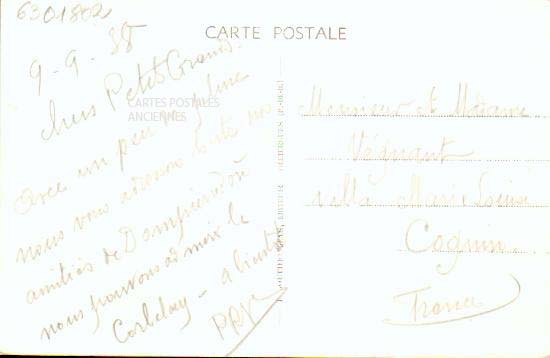 6301802
CARTE POSTALE
9-9. 38
Chers Petits Grands.
CARTES POSTALES
ANCIENNES
avec un peu
nous vous adressons toutes nos
amitiés de Dampierre d'où
nous pouvons admirer le
Corbelay - a bientôt
PRV
Monsieur et Madame
Végnaut
villa Marie Louise
Cognin.
France